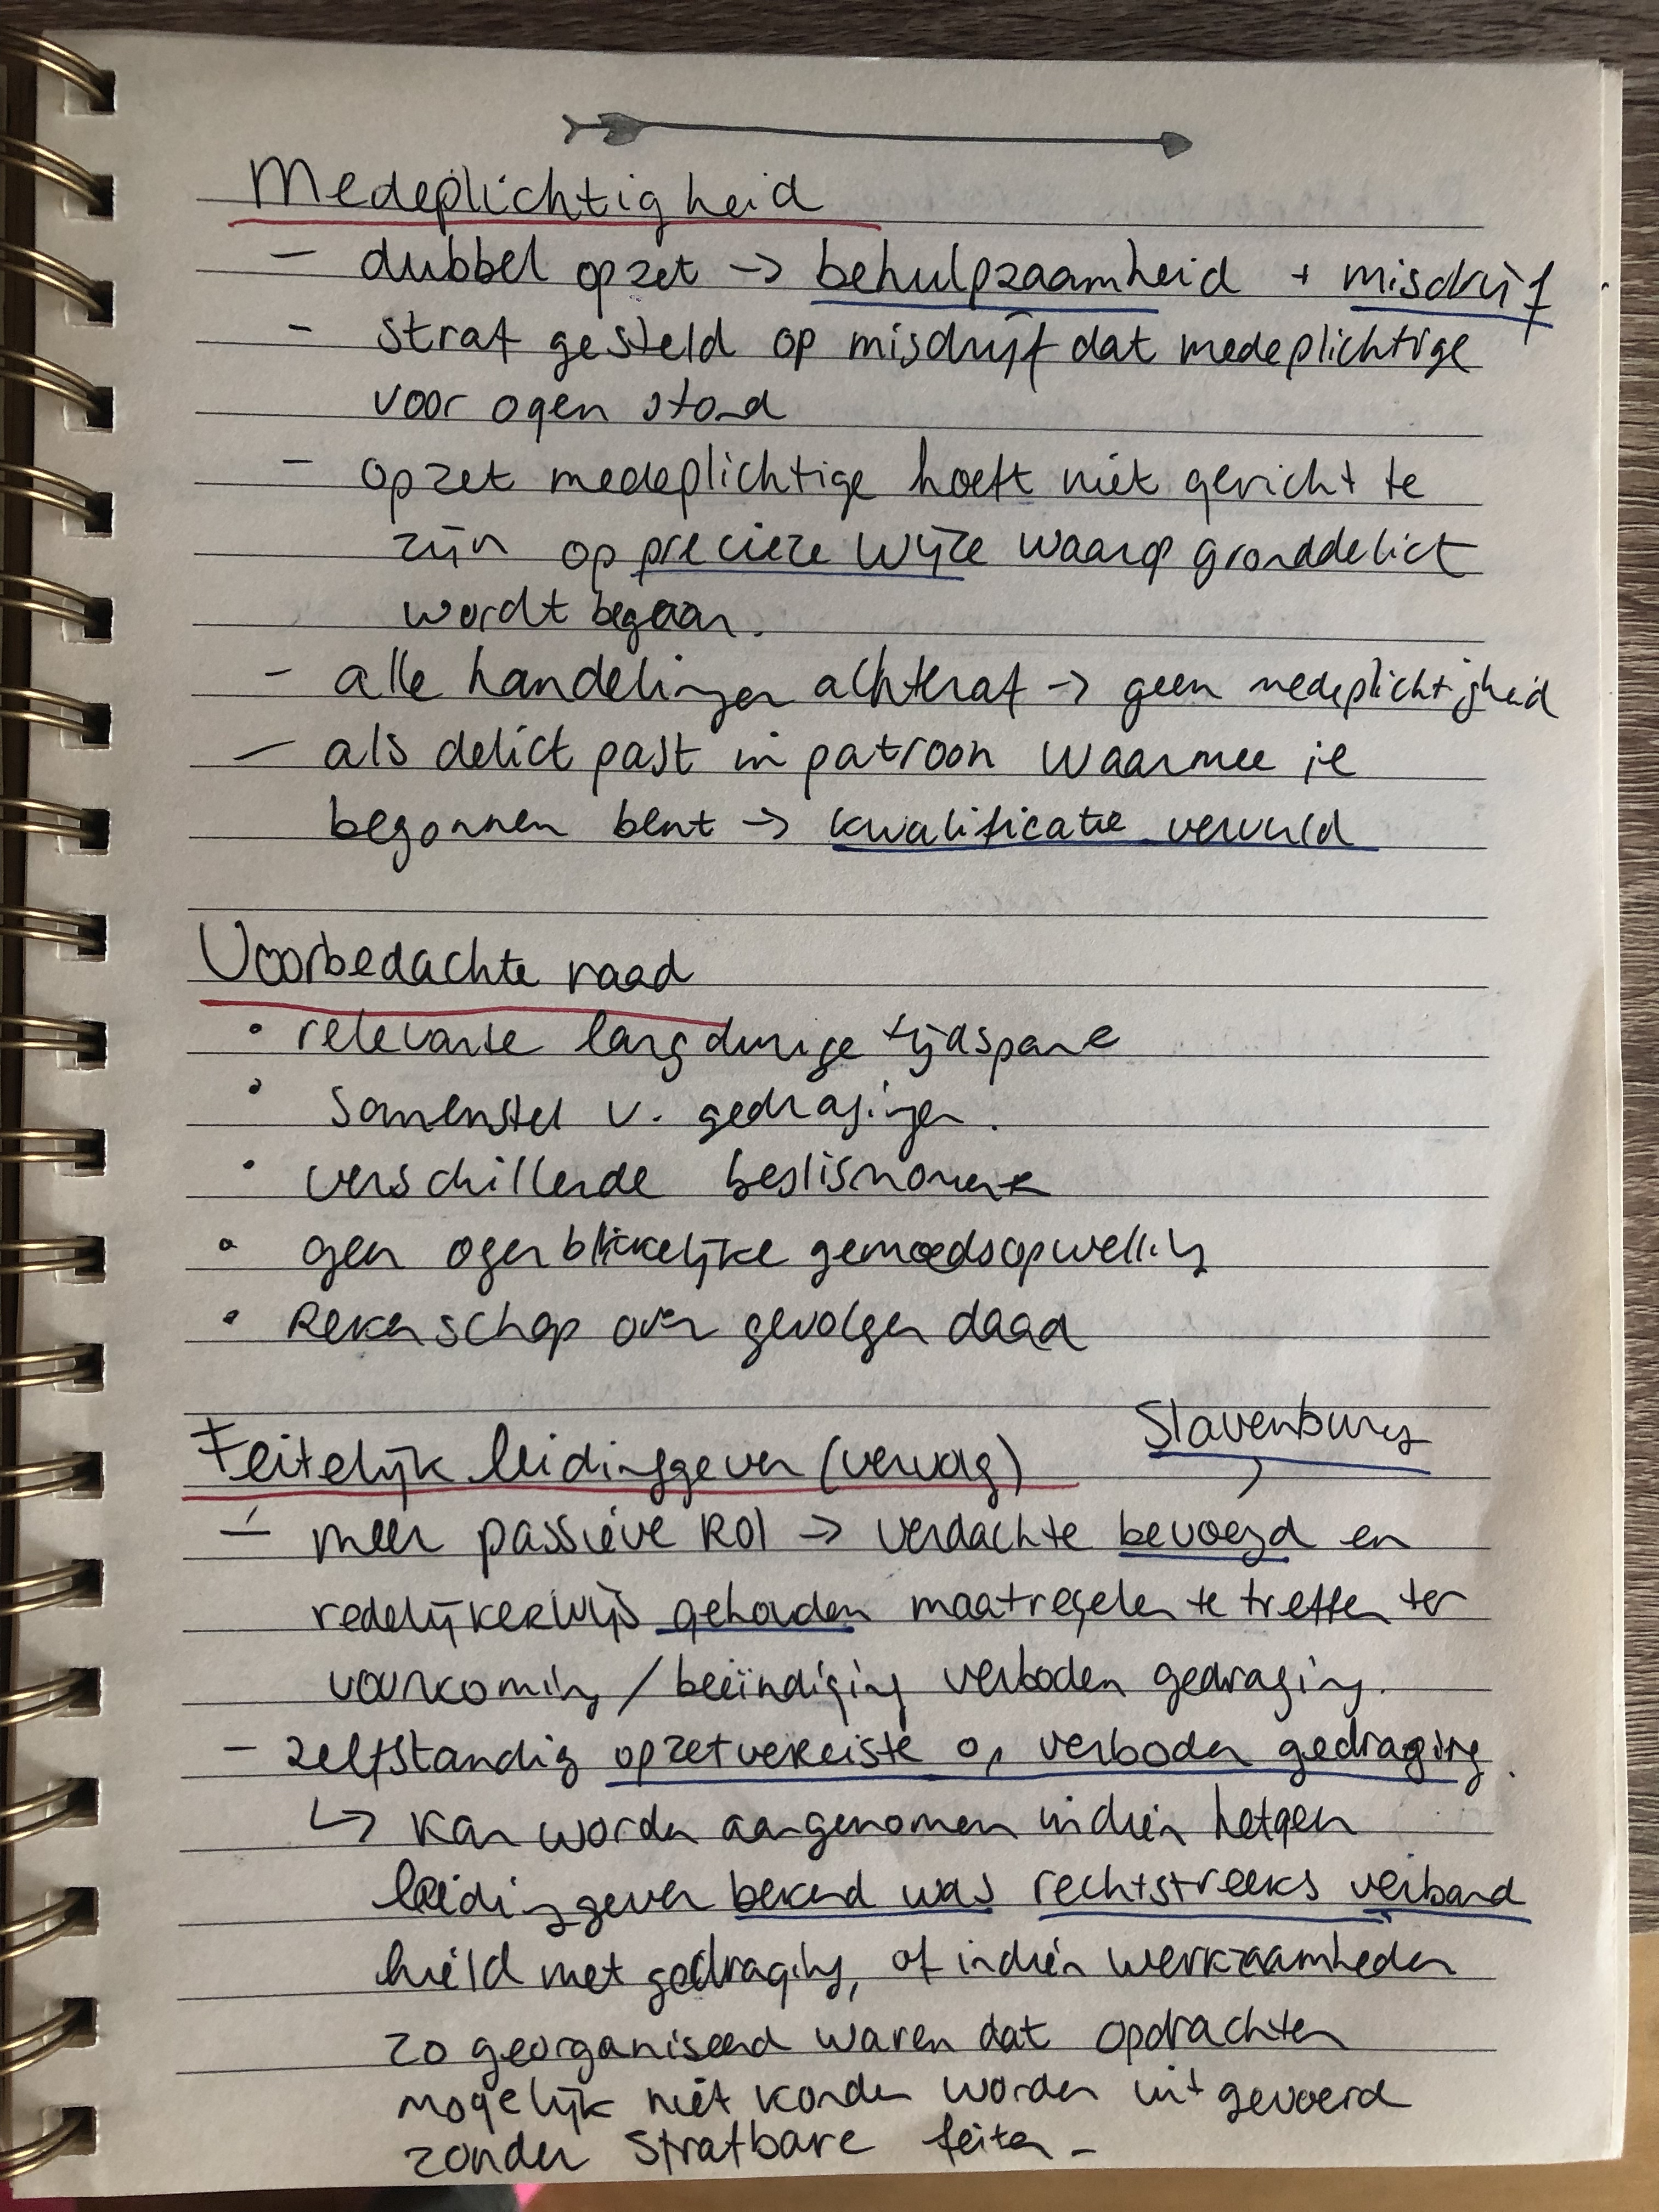 Medeplichtigheid
- dubbel opzet -> behulpzaamheid + misdrijf
- straf gesteld op misdrijf dat medeplichtige
voor ogen stond
- opzet medeplichtige hoeft niet gericht te
zijn op precieze wijze waarop gronddelict
wordt begaan.
- alle handelingen achteraf -> geen medeplichtigheid
- als delict past in patroon waarmee je
begonnen bent -> kwalificatie vervuld
Voorbedachte raad
• relevante langdurige tijdspanne
• samenstel v. gedragingen.
• verschillende beslismoment
• geen ogenblikkelijke gemoedsopwelling
• Rekenschap over gevolgen daad
Slavenburg
Feitelijk leidinggever (vervolg)
- meer passieve rol -> verdachte bevoegd en
redelijkerwijs gehouden maatregelen te treffen ter
voorkoming / beëindiging verboden gedraging.
- zelfstandig opzetvereiste op verboden gedraging.
↳ kan worden aangenomen indien hetgeen
leidinggever bekend was rechtstreeks verband
hield met gedraging, of indien werkzaamheden
zo georganiseerd waren dat opdrachten
mogelijk niet konden worden uitgevoerd
zonder strafbare feiten -